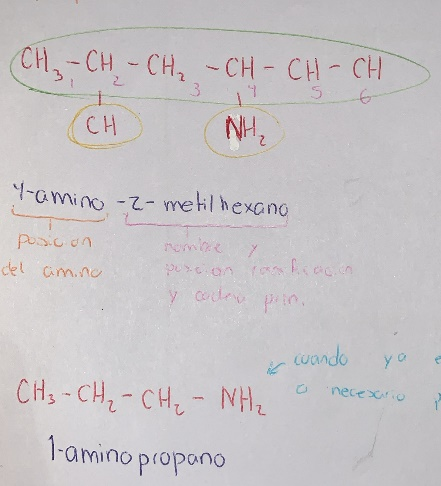 CH₃ - CH - CH₂ - CH - CH - CH
1 2 3 4 5 6
CH NH₂
4-amino-2-metilhexano
posicion
del amino
nombre y
posicion ramificacion
y cadena prin.
cuando ya
o necesario
CH₃ - CH₂ - CH₂ - NH₂
1-aminopropano